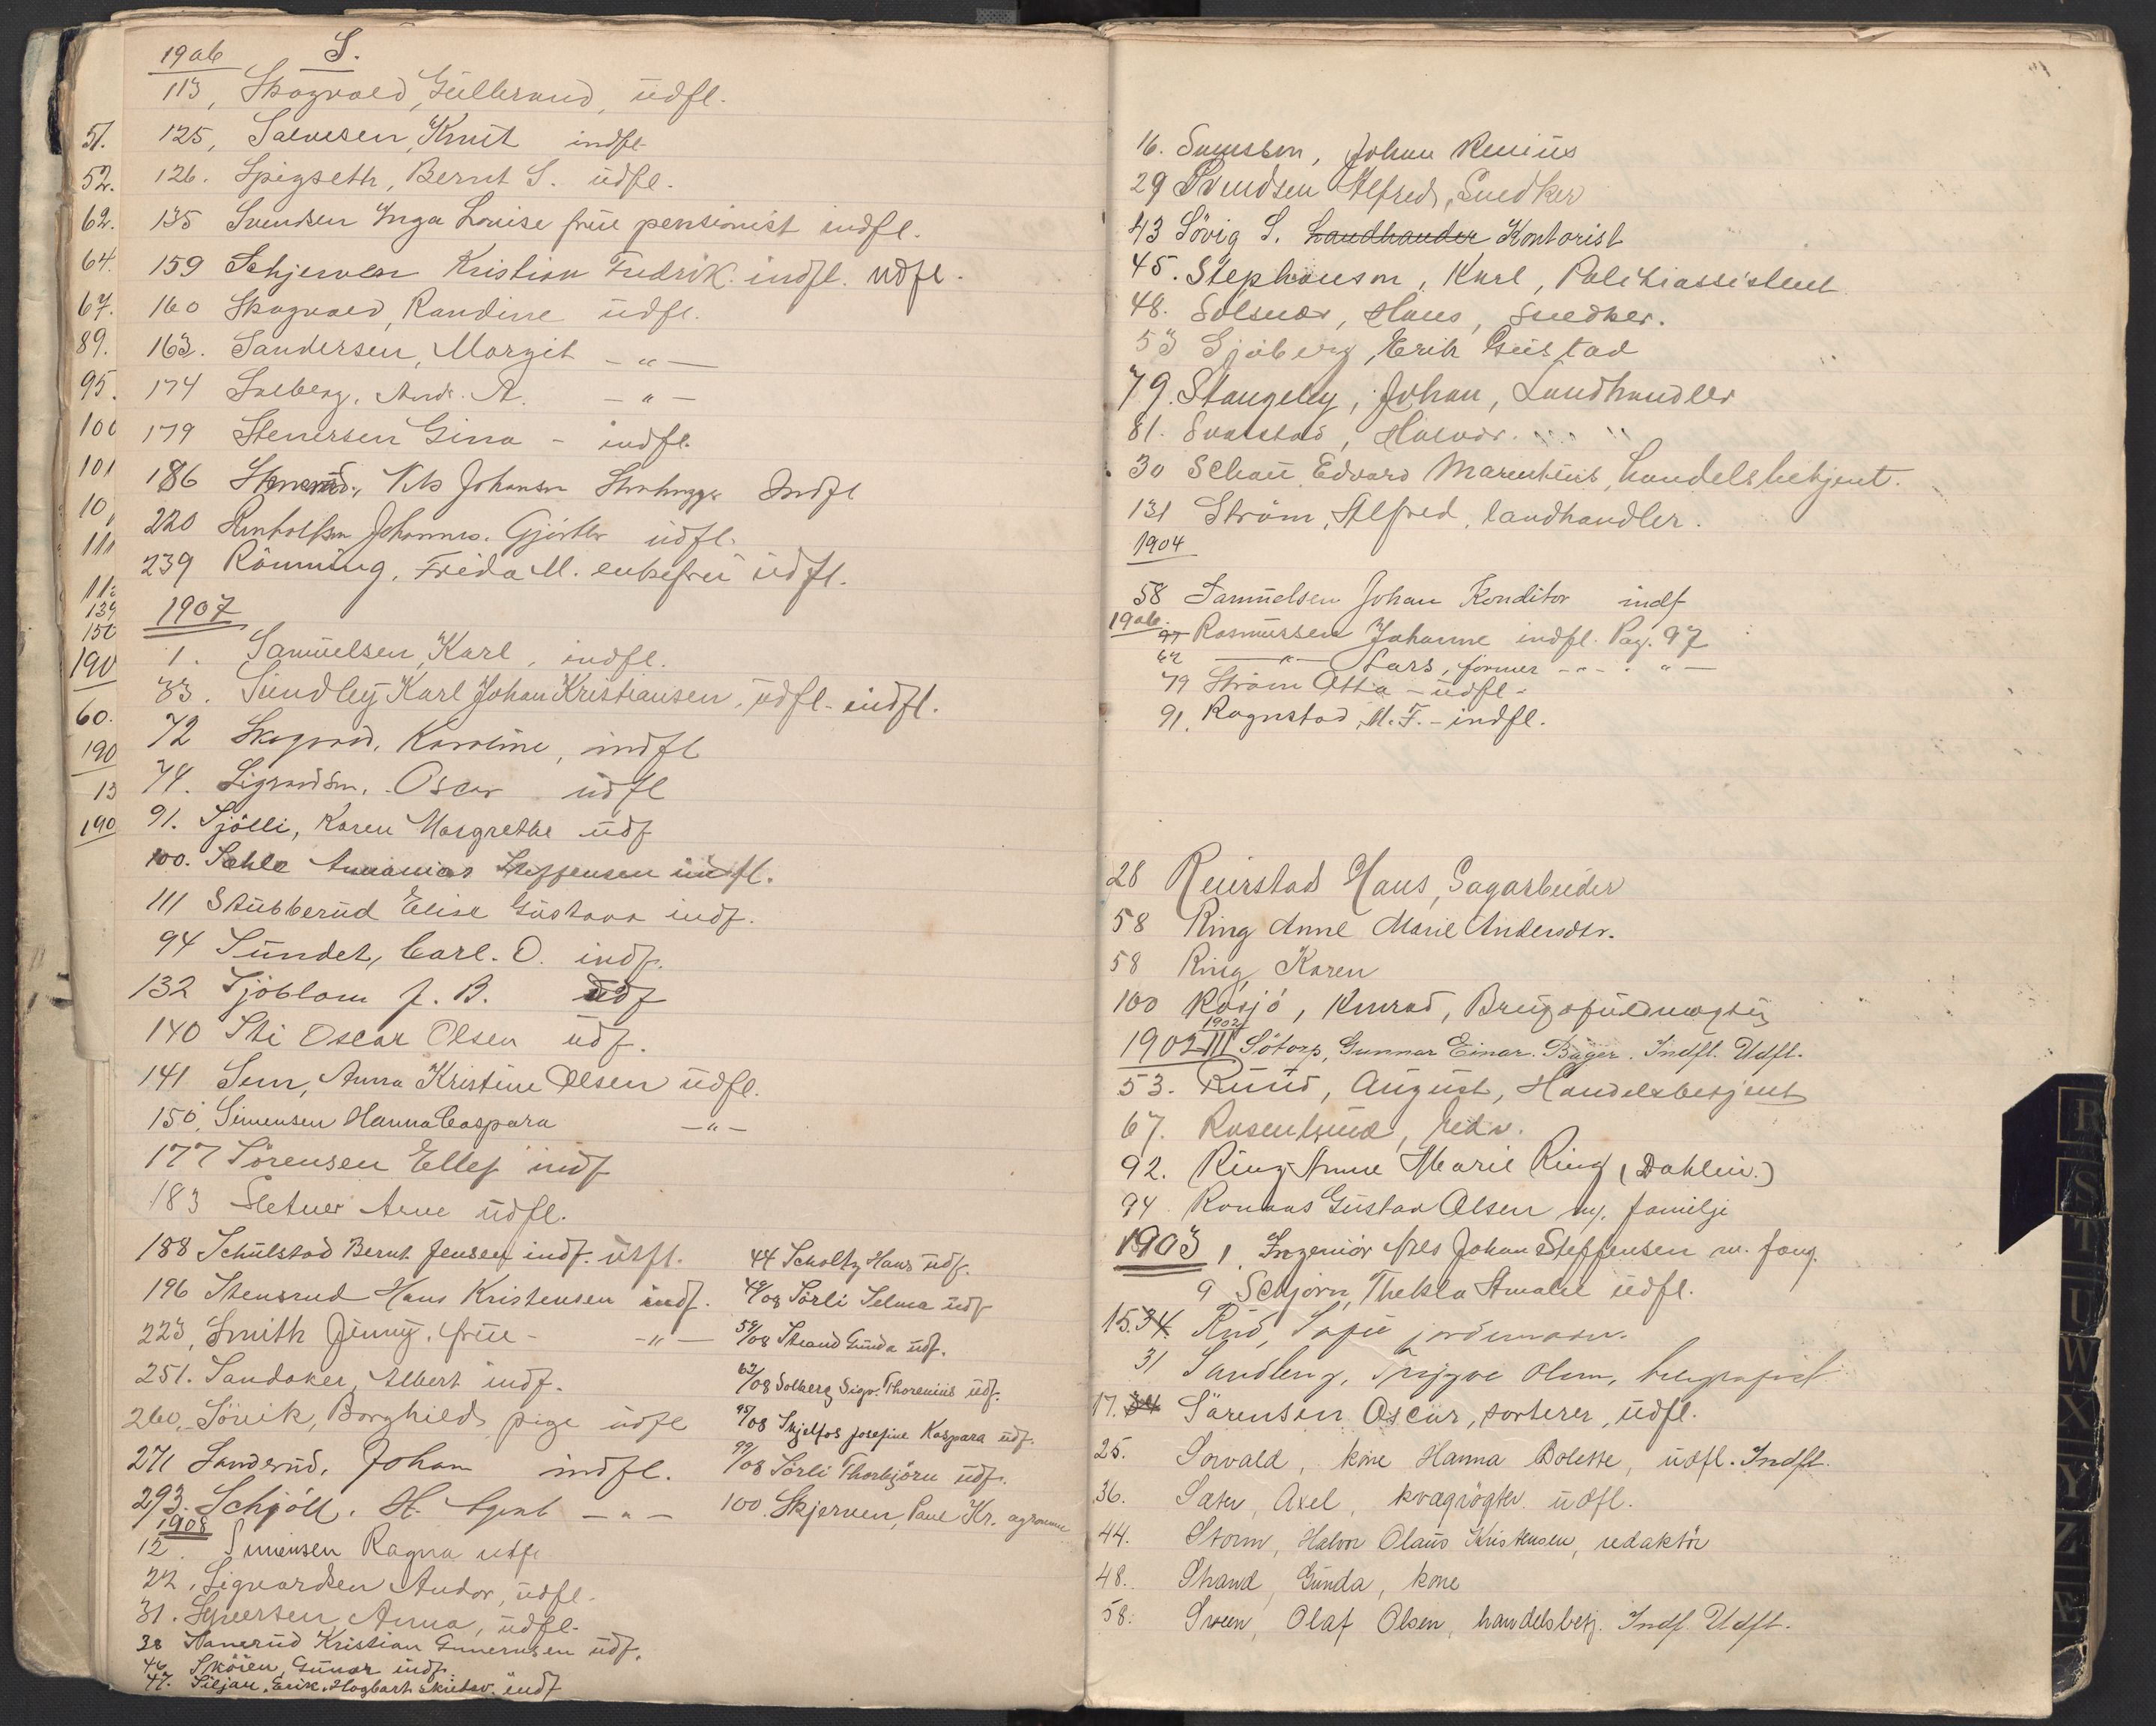 1906 S.
113, Skogvold, Gullerund, udfl.
125, Salvesen, Knut indfl
126. Spigseth, Bernt S. udfl.
135 Svendsen Inga Louise frue pensionist indfl.
159 Schjerven Kristian Fredrik. indfl. udfl.
160 Skogvold, Randine udfl.
163. Sandersen, Margit — " —
174 Solberg, Andr. A. — " —
179 Stenersen Gina - indfl.
186 Nils Johansen Indfl
220 Johannes. Gjörtler udfl.
239 Rönning, Frida M. enkefru udfl.
1907
1. Samuelsen, Karl, indfl.
33. Sundby Karl Johan Kristiansen, udfl - indfl.
72 Karoline, indfl
74. Oscar udfl
91. Sjölli, Karen Margrethe udf
100. Sahle Ananias Steffensen indfl.
111 Stubberud Elise Gustava indf.
94 Sundet, Carl. O. indf.
132 Sjöblom J. B. udf
140 Sti Oscar Olsen udf.
141 Sem, Anna Kristine Olsen udfl.
150, Simensen Hanna Caspara — " —
177 Sörensen Ellef indf
183 Sletner Arne udfl.
188 Schulstad Bernt Jensen indf. udfl.
196 Stensrud Hans Kristensen indf.
223, Smith Jenny, frue - — " —
251. Sandaker, Albert indf.
260, Sörvik, Borghild, pige udfl
271 Sanderud, Johan indfl.
293. Schjöll. St. Agent — " —
1908
12. Simensen Ragna udfl
22, Sigvardsen Andor, udfl.
31. Syversen Anna, udfl.
38 Kristian Gunerusen udf.
46 Sköien, Gunar indf.
47. Siljan, Erik Hagbart indf
44 Scholtz Hans udf.
49/08 Sörli Selma udf
59/08 Strand Gunda udf.
62/08 Solberg Sigv. Thorenius udf.
95/08 Skjelfos Josefine Kaspara udf.
99/08 Sörli Thorbjörn udf.
100. Skjerven, Paul Kr. agronom
51.
52.
62.
64.
67.
89.
95.
100
101
10
111
112
139
150
190
60.
190
13
190
16. Johan Renius
29 Svendsen Alfred, Snedker
43 Sövig S. Landhander Kontorist
45. Stephansen, Karl, Politiassistent
48. Solsnæs, Hans, Snedker.
53 Sjöberg, Erik Gustad
79. Stangeby, Johan, Landhandler
81. Svarstad, Halvor. " "
30 Schau Edvard Marenhius, handelsbetjent.
131 Ström, Alfred, landhandler.
1904
58 Samuelsen Johan Konditor indf
1906. 97 Rasmussen Johanne indfl. Pag. 97
62 — " — Lars, former - " - " —
79 Ström Otta - udfl -
91. Rognstad, M. F. - indfl.
28 Reierstad Hans, Sagarbeider
58 Ring Anne Marie Andersdtr.
58 Ring Karen
100 Rösjö, Konrad, Brugsfuldmægtig
1902 III 1902 Sötorp, Gunnar Einar. Bager. Indfl. Udfl.
53. Ruud, August, Handelsbetjent
67. Rosenlund, Edv.
92. Ring Anne Marie Ring (Dahlen.)
94. Romaas Gustav Olsen m. familje
1903 1, Ingeniör Nils Johan Steffensen m. fam.
9 Schjörn, Thekla Amalie udfl.
15. 34. Rud, Sofie jordmoder.
31 Sandberg, Trygve Olsen, telegrafist
17. 34 Sörensen Oscar, sorterer, udfl.
25. Sorvald, kone Hanna Bolette, udfl. Indfl.
36. Sater, Axel, kvægrögter udfl.
44. Storm, Halvor Olaus Kristensen, redaktör
48. Strand, Gunda, kone
58. Sveen, Olaf Olsen, handelsbetj. Indf. Udfl.
R
S
T
U
W
X
Y
Z